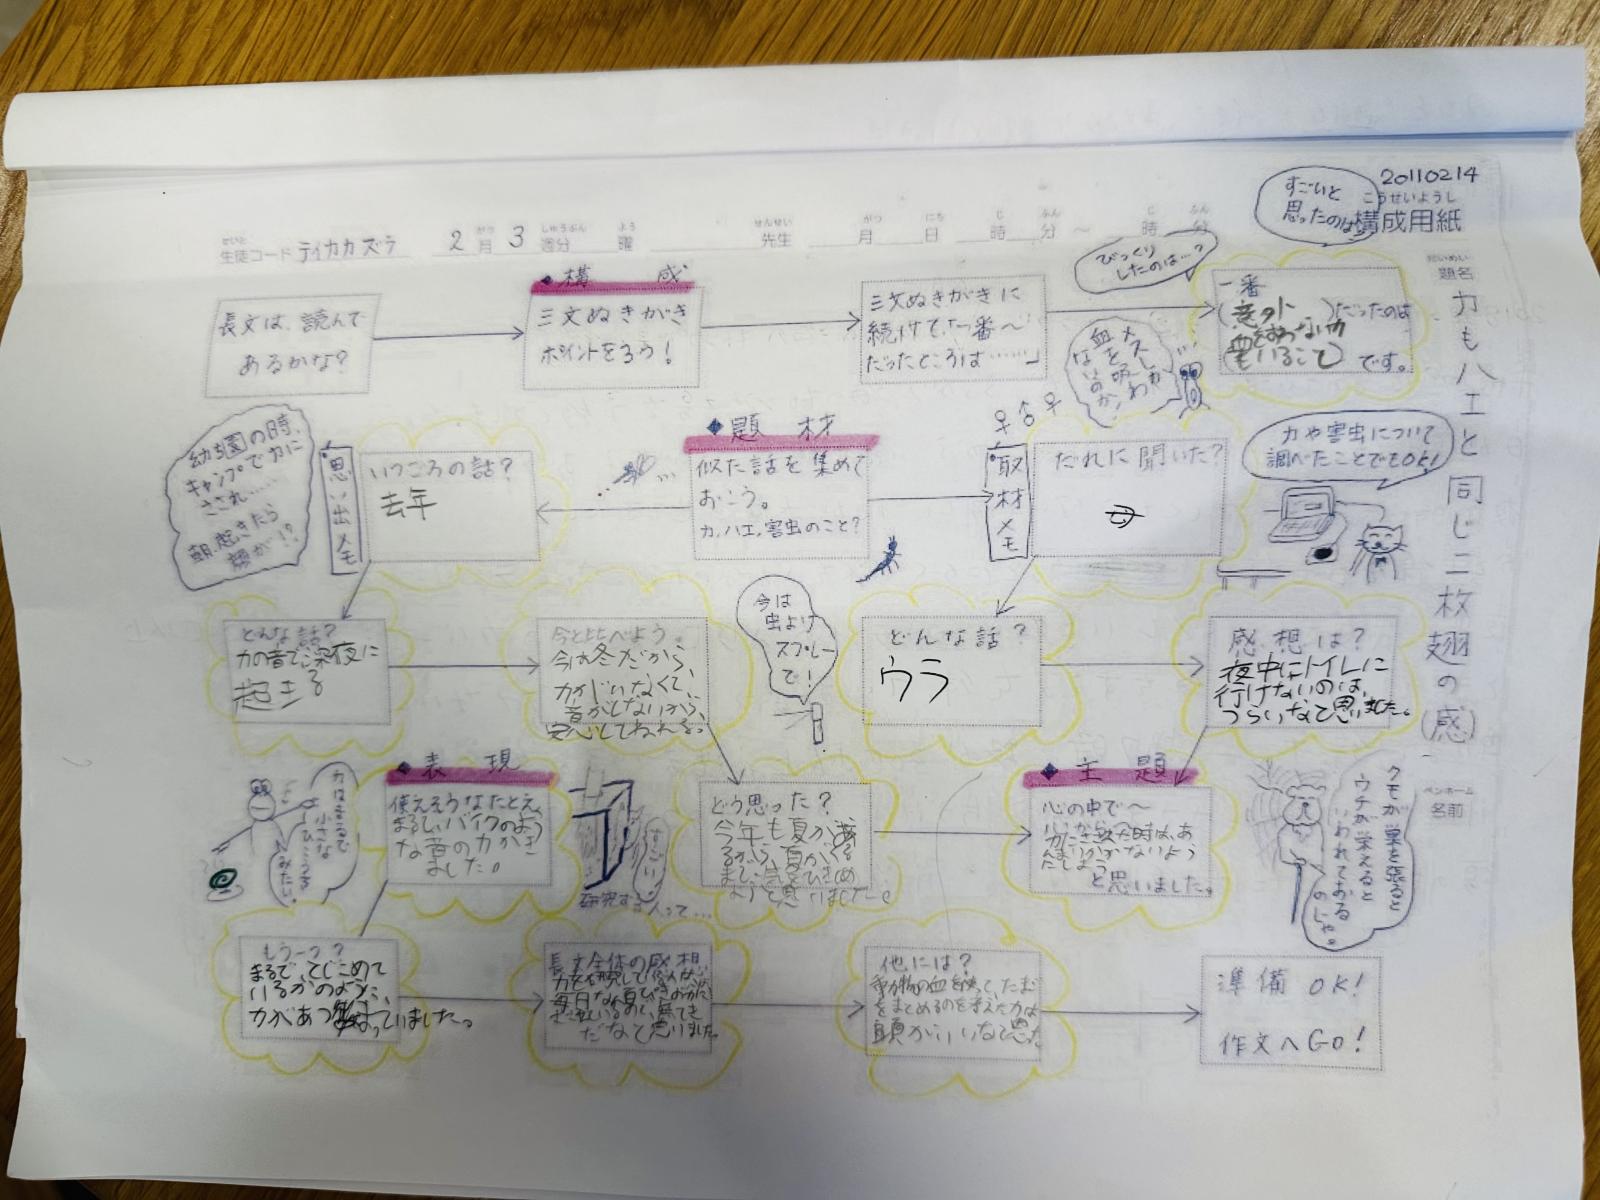 20110214
こうせいようし
構成用紙
すごいと
思ったのは
せいと
生徒コード テイカカズラ 2月 3週分 曜 先生 月 日 時 分 ~ 時 分
だいめい
題名
カもハエと同じ二枚翅の(感)
ペンネーム
名前
長文は、読んで
あるかな?
◆構 成
三文ぬきがき
ポイントをろう!
三文ぬきがきに
続けて、「一番~
だったところは……」
びっくり
したのは…?
一番
(意外)だったのは
血をすわないカ
もいること
です。
メスしか
血を吸わ
ないのか、
幼稚園の時、
キャンプでカに
さされ……
朝、起きたら
顔が!?
思い出メモ
いつごろの話?
去年
◆題 材
似た話を集めて
おこう。
カ、ハエ、害虫のこと?
♀♂♀
取材メモ
だれに聞いた?
母
カや害虫について
調べたことでもOK!
どんな話?
カの音で深夜に
起きる
今と比べよう。
今は冬だから、
カがいなくて、
音がしないから、
安心してねれる。
今は
虫よけ
スプレー
で!
どんな話?
ウラ
感想は?
夜中にトイレに
行けないのは、
つらいなと思いました。
カはまるで
小さな
ひこうき
みたい。
◆表 現
使えそうなたとえ
まるでバイクのよう
な音のカがき
ました。
すごい
研究する人って…
どう思った?
今年も夏が
るから、夏がくる
まで、
ようと思いました。
◆主 題
心の中で~
カにさされた時は、あ
んまりかかないよう
にしよう
と思いました。
クモが巣を張ると
ウチが栄えると
いわれておる
のじゃ。
もう一つ?
まるで、とじこめて
いるかのように、
カがあつまっていました。
長文全体の感想
カを研究して
毎日
だなと思いました。
他には?
動物の血を吸って、たまご
をまとめるのを考えたカは
頭がいいなと思った。
準備OK!
作文へGO!